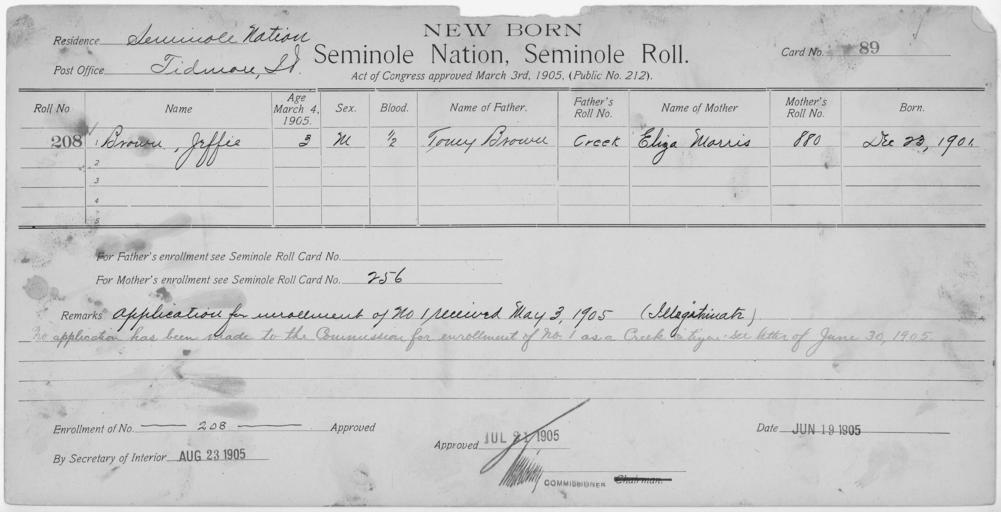 NEW BORN
Seminole Nation, Seminole Roll.
Act of Congress approved March 3rd, 1905. (Public No. 212).
Residence Seminole Nation
Post Office Tidmore, I.T.
Card No. 89
Roll No Name Age March 4, 1905. Sex. Blood. Name of Father. Father's Roll No. Name of Mother Mother's Roll No. Born.
208 1 Brown, Jeffie 3 M ½ Tomy Brown Creek Eliza Morris 880 Dec 23, 1901
2
3
4
5
For Father's enrollment see Seminole Roll Card No.
For Mother's enrollment see Seminole Roll Card No. 256
Remarks Application for enrollment of No 1 received May 3, 1905 (Illegitimate)
No application has been made to the Commission for enrollment of No. 1 as a Creek citizen. See letter of June 30, 1905.
Enrollment of No. 208 Approved
By Secretary of Interior AUG 23 1905
Approved JUL 1905
COMMISSIONER Chairman.
Date JUN 19 1905